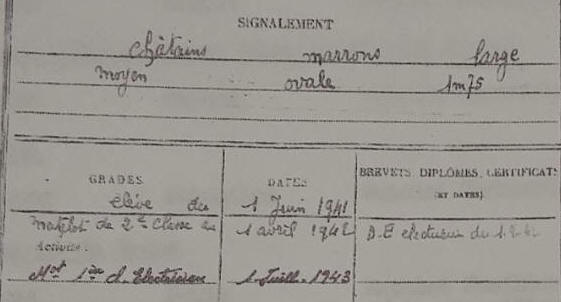 SIGNALEMENT
châtains marrons large
moyen ovale 1m75
GRADES DATES BREVETS, DIPLÔMES, CERTIFICATS
(ET DATES)
élève du 1 Juin 1941
matelot de 2e classe 1 avril 1942 B.E électricien du
activité.
Mot 1ère cl. Electricien 1. Juill. 1943